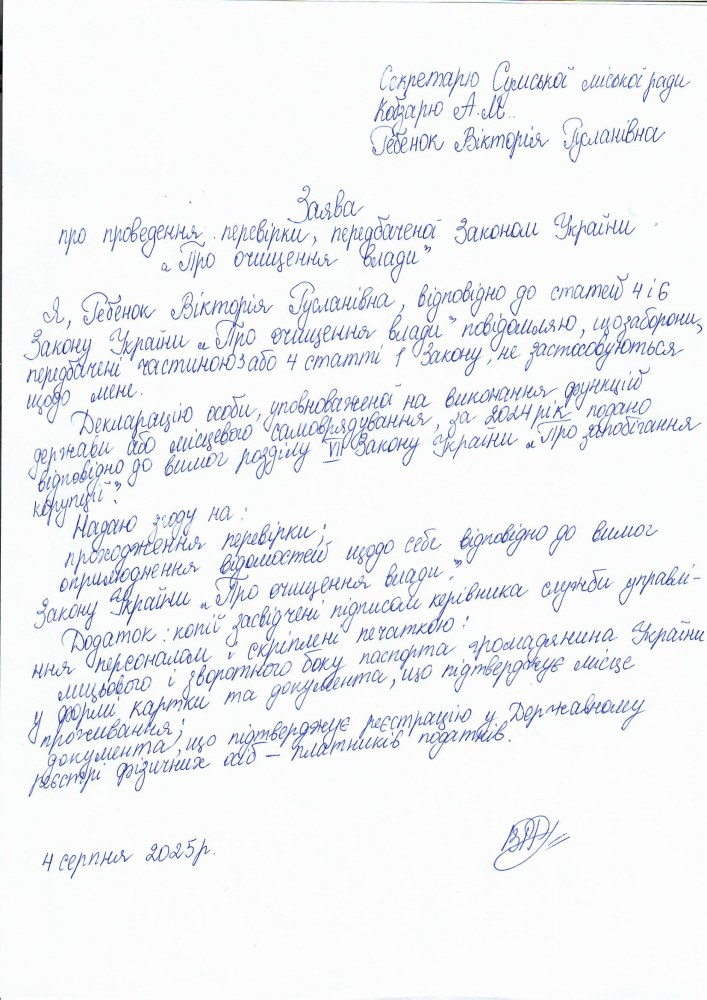 Секретарю Сумської міської ради
Кобзарю А.М.
Гебенок Вікторія Русланівна
Заява
про проведення перевірки, передбаченої Законом України
„Про очищення влади"
Я, Гебенок Вікторія Русланівна, відповідно до статей 4 і 6
Закону України „Про очищення влади" повідомляю, що заборони,
передбачені частиною 3 або 4 статті 1 Закону, не застосовуються
щодо мене.
Декларацію особи, уповноваженої на виконання функцій
держави або місцевого самоврядування, за 2024 рік подано
відповідно до вимог розділу VII Закону України „Про запобігання
корупції".
Надаю згоду на:
проходження перевірки;
оприлюднення відомостей щодо себе відповідно до вимог
Закону України „Про очищення влади".
Додаток: копії засвідчені підписом керівника служби управлі-
ння персоналом і скріплені печаткою:
лицьового і зворотного боку паспорта громадянина України
у формі картки та документа, що підтверджує місце
проживання;
документа, що підтверджує реєстрацію у Державному
реєстрі фізичних осіб – платників податків.
4 серпня 2025р.